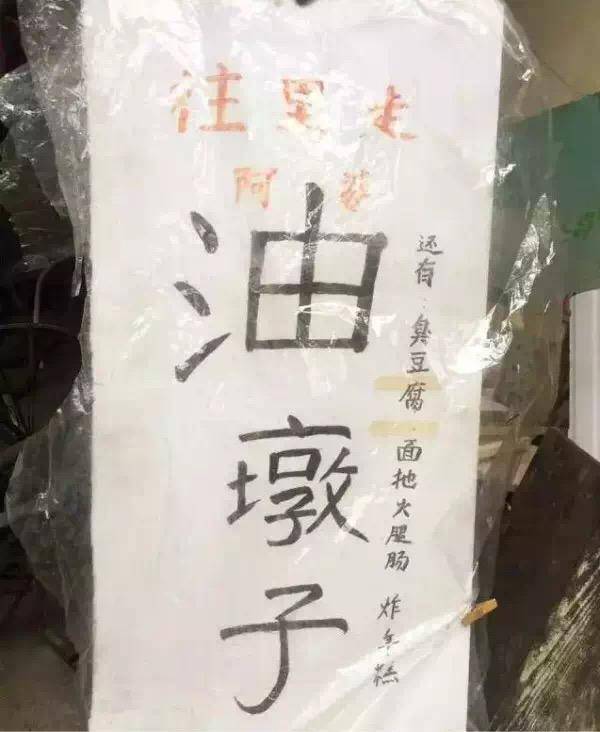 往里走
阿婆
油墩子
还有：臭豆腐、面拖火腿肠 炸年糕